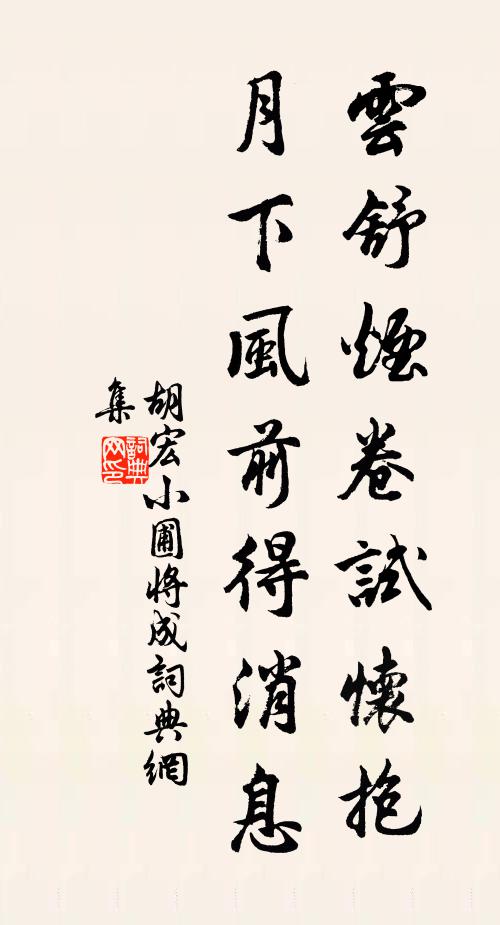 雲舒煙卷試懷抱
月下風前得消息
胡宏小圃將成詞典網
集
詞典
网印